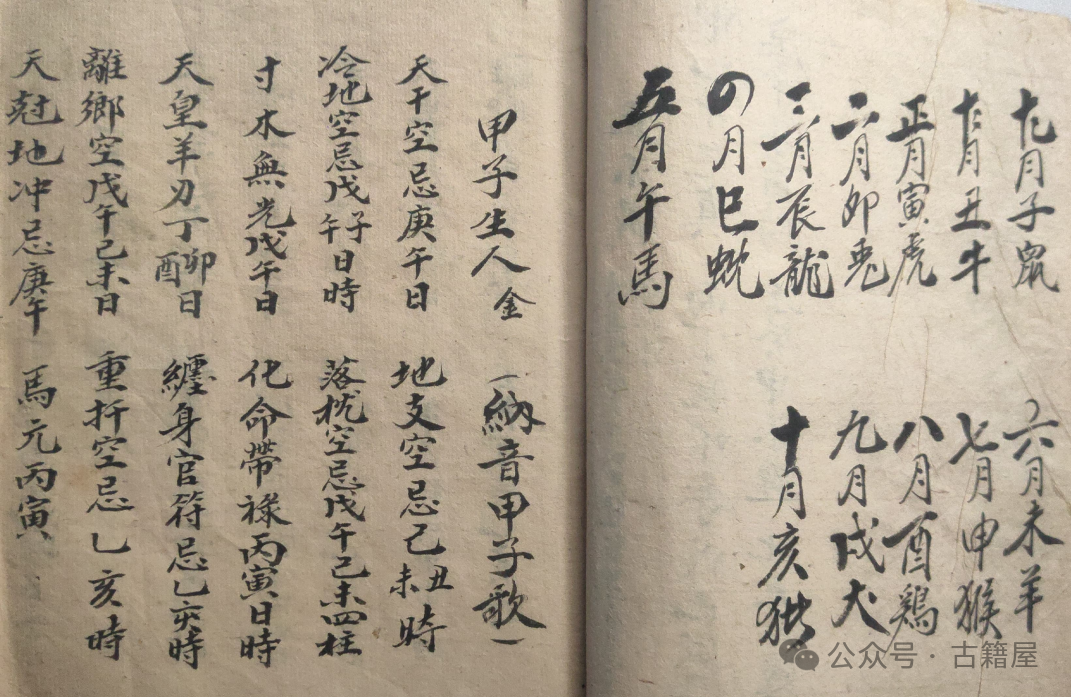 十一月子鼠
十二月丑牛
正月寅虎
二月卯兎
三月辰龍
四月巳虵
五月午馬
六月未羊
七月申猴
八月酉鶏
九月戌犬
十月亥猪
甲子生人金 (納音甲子歌)
天干空忌庚午日 地支空忌己丑未時
冷地空忌戊子午日時 落枕空忌戊午己未四柱
寸木無光戊午日 化命帶祿丙寅日時
天皇羊刃丁卯酉日 纏身官符忌乙亥時
離鄉空戊午己未日 重折空忌乙亥時
天尅地冲忌庚午 馬元丙寅
公众号·古籍屋